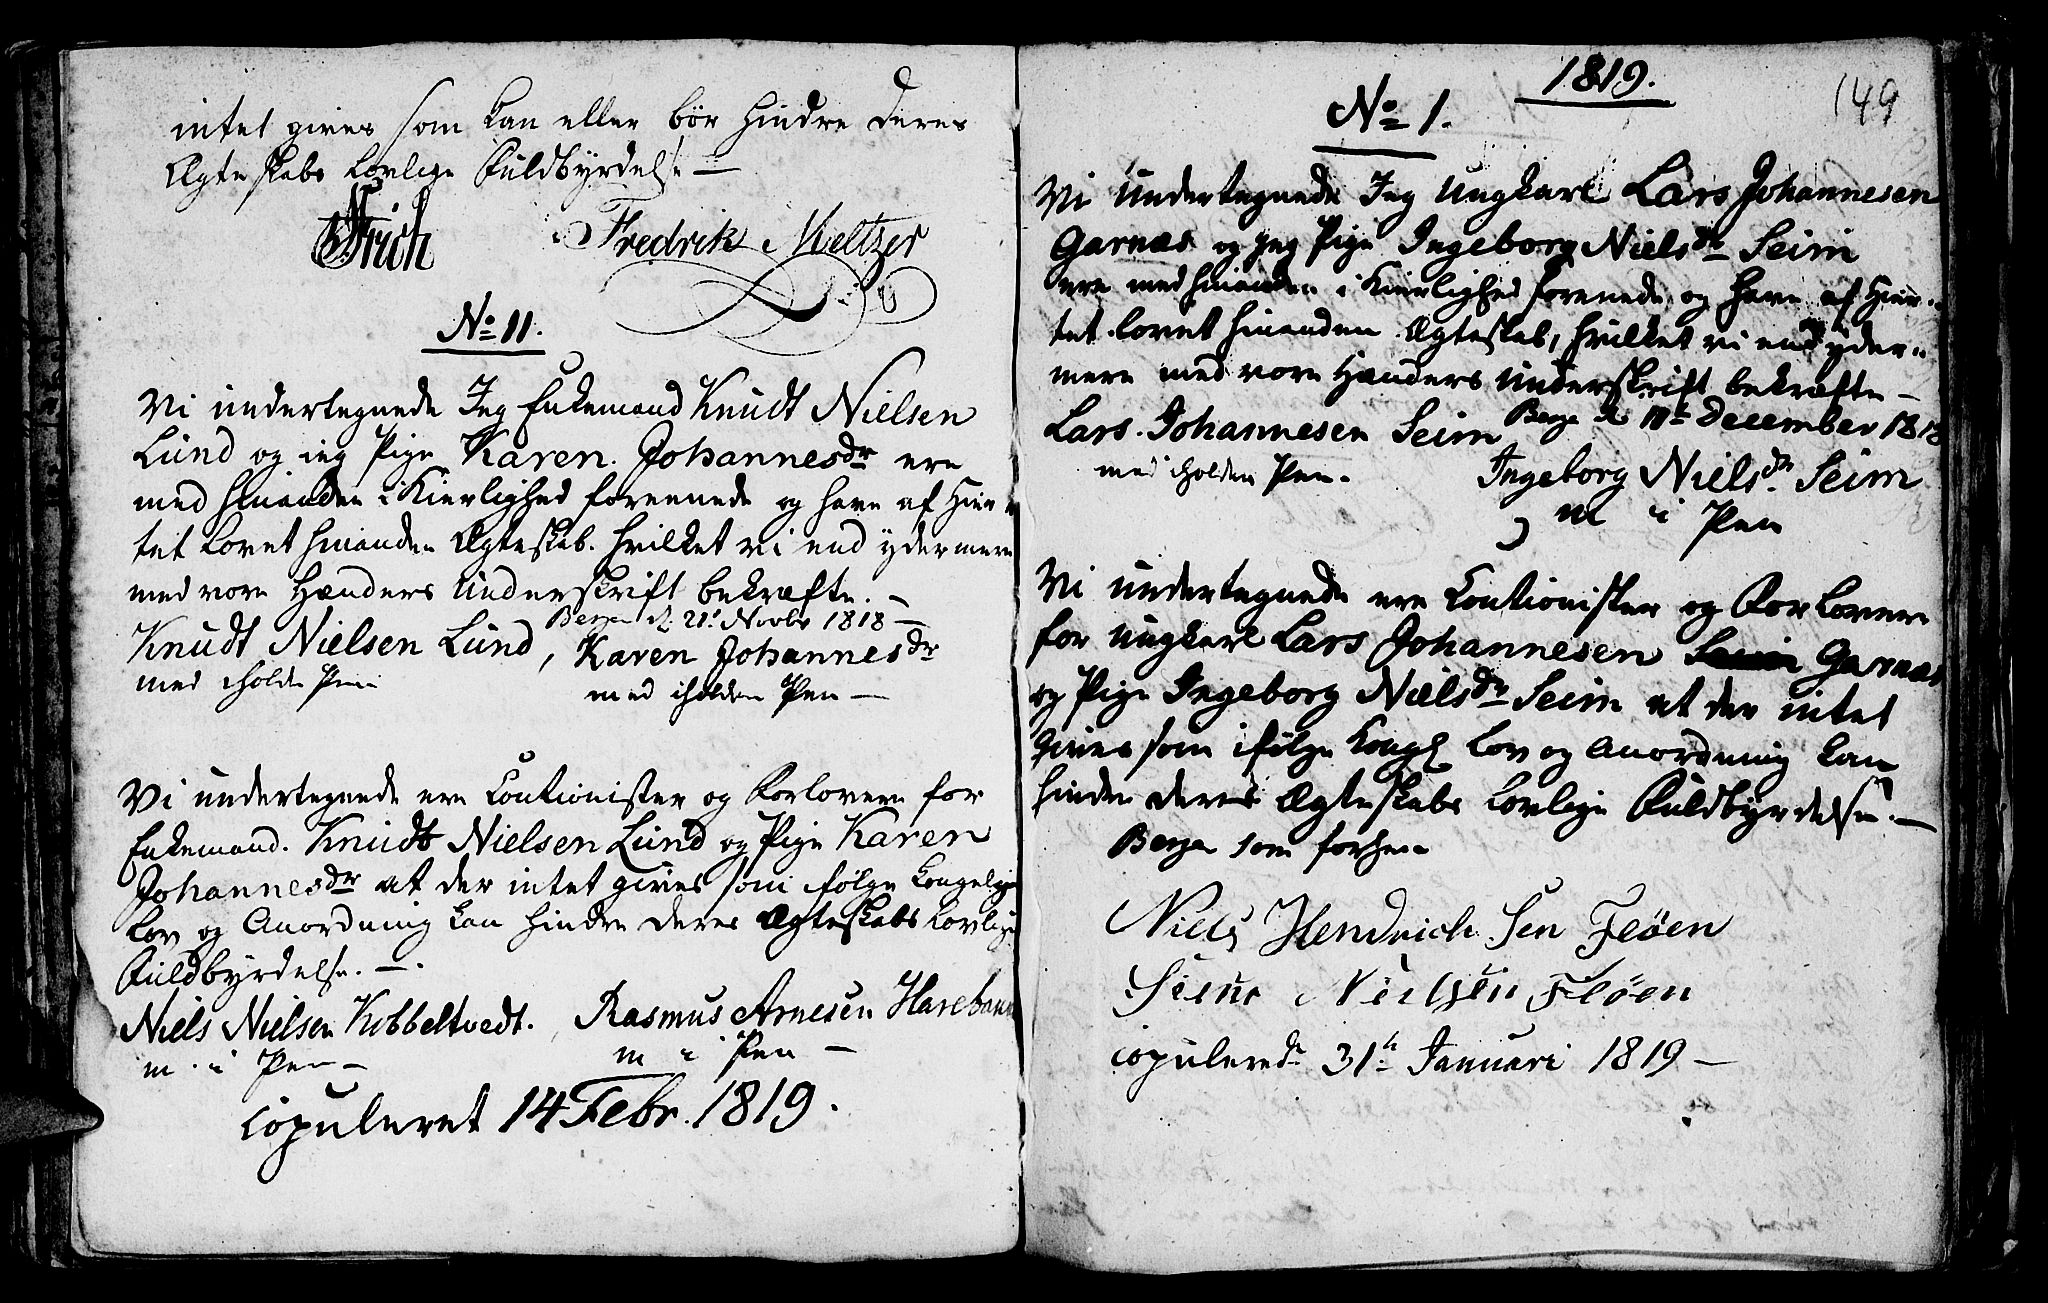 intet gives som kan eller bör hindre deres
Ægteskabs lovlige Fuldbyrdelse —
Frich Fredrik Meltzer
No 11.
Vi undertegnede Jeg Enkemand Knudt Nielsen
Lund og jeg Pige Karen Johannesdr ere
med hinanden i Kierlighed foreenede og have af Hier
tet lovet hinanden Ægteskab. hvilket vi end ydermere
med vore Hænders Underskrift bekræfte. —
Bergen d. 21. Novbr 1818 —
Knudt Nielsen Lund, Karen Johannesdr
med iholden Pen med iholden Pen —
Vi undertegnede ere Cautionister og Forlovere for
Enkemand. Knudt Nielsen Lund og Pige Karen
Johannesdr at der intet gives som ifølge kongelige
Lov og Anordning kan hindre deres Ægteskabs Lovlige
Fuldbyrdelse. —.
Niels Nielsen Kobbeltvedt. Rasmus Arnesen
m. i Pen — m i Pen —
copuleret 14 Febr. 1819.
1819.
149
No 1.
Vi undertegnede Jeg Ungkarl Lars Johannesen
Garnæs og jeg Pige Ingeborg Nielsdr Seim
ere med hinanden i Kierlighed forenede og have af Hier-
tet lovet hinanden Ægteskab, hvilket vi end yder-
mere med vore Hænders Underskrift bekræfte —
Bergen d. 11te December 1818
Lars Johannesen Seim
med iholden Pen. Ingeborg Nielsdr Seim
m i Pen
Vi undertegnede ere Cautionister og Forlovere
for Ungkarl Lars Johannesen Seim Garnæs
og Pige Ingeborg Nielsdr Seim at der intet
gives som ifølge Kongl Lov og Anordning kan
hindre deres Ægteskabs Lovlige Fuldbyrdelse. —
Bergen som forhen
Niels Hendrich Sen Fløen
Nielsen Fløen
copulerede 31te Januari 1819 —